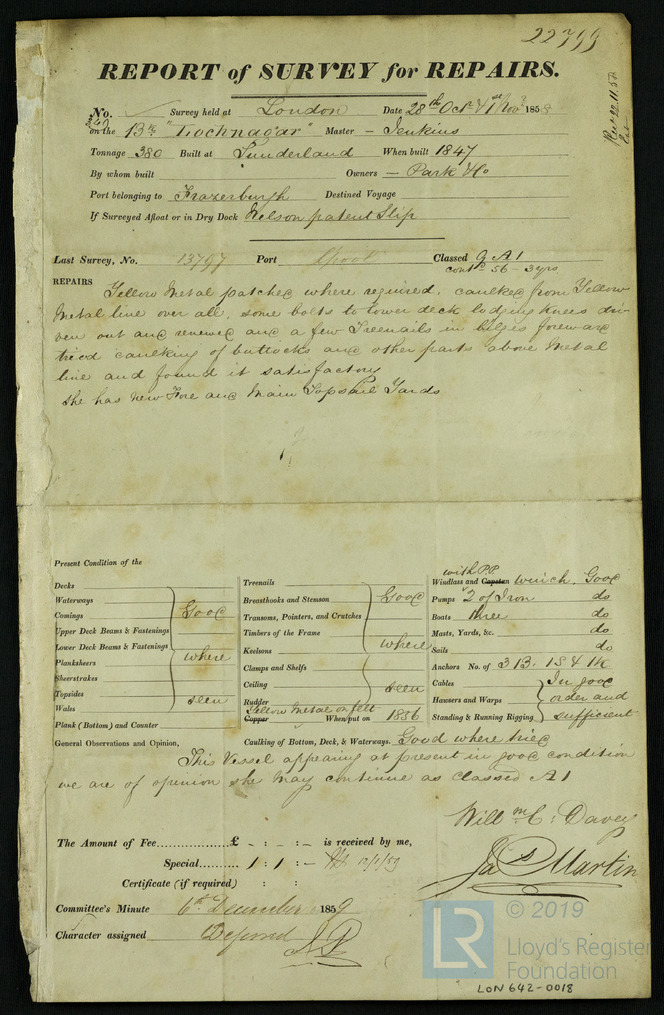 22799
REPORT of SURVEY for REPAIRS.
No. Survey held at London Date 28th Octr & 1st Novr 1858
on the 13th "Lochnagar" Master – Jenkins
Tonnage 380 Built at Sunderland When built 1847
By whom built Owners – Park & Co
Port belonging to Frazerburgh Destined Voyage
If Surveyed Afloat or in Dry Dock Nelson patent Slip
Last Survey, No. 13797 Port Lpool Classed 9 A1
contd 56 - 3yrs
REPAIRS Yellow Metal patched where required, caulked from Yellow
Metal line over all, some bolts to lower deck lodging knees dri-
ven out and renewed and a few Treenails in bilges foreward
tried caulking of buttocks and other parts above Metal
line and found it satisfactory
She has new Fore and Main Topsail Yards
Present Condition of the
Decks
Waterways
Comings
Upper Deck Beams & Fastenings
Lower Deck Beams & Fastenings
Planksheers
Sheerstrakes
Topsides
Wales
Good
where
seen
Plank (Bottom) and Counter
Treenails
Breasthooks and Stemson
Transoms, Pointers, and Crutches
Timbers of the Frame
Keelsons
Clamps and Shelfs
Ceiling
Rudder
Good
where
seen
Yellow Metal on felt
Copper When put on 1856
with P.P.
Windlass and Capstan winch Good
Pumps 2 of Iron do
Boats three do
Masts, Yards, &c. do
Sails do
Anchors No. of 3 B. 1 S & 1 K
Cables
Hawsers and Warps
Standing & Running Rigging
In good
order and
sufficient
General Observations and Opinion, Caulking of Bottom, Deck, & Waterways. Good where tried
This Vessel appearing at present in good condition
we are of opinion she may continue as classed A1
Willm C: Davey
Jas Martin
The Amount of Fee £ - : - : - is received by me,
Special 1 : 1 : -
Certificate (if required) : :
Committee's Minute 6th December 1859
Character assigned Deferred
© 2019
LR
Lloyd's Register
Foundation
LON 642-0018